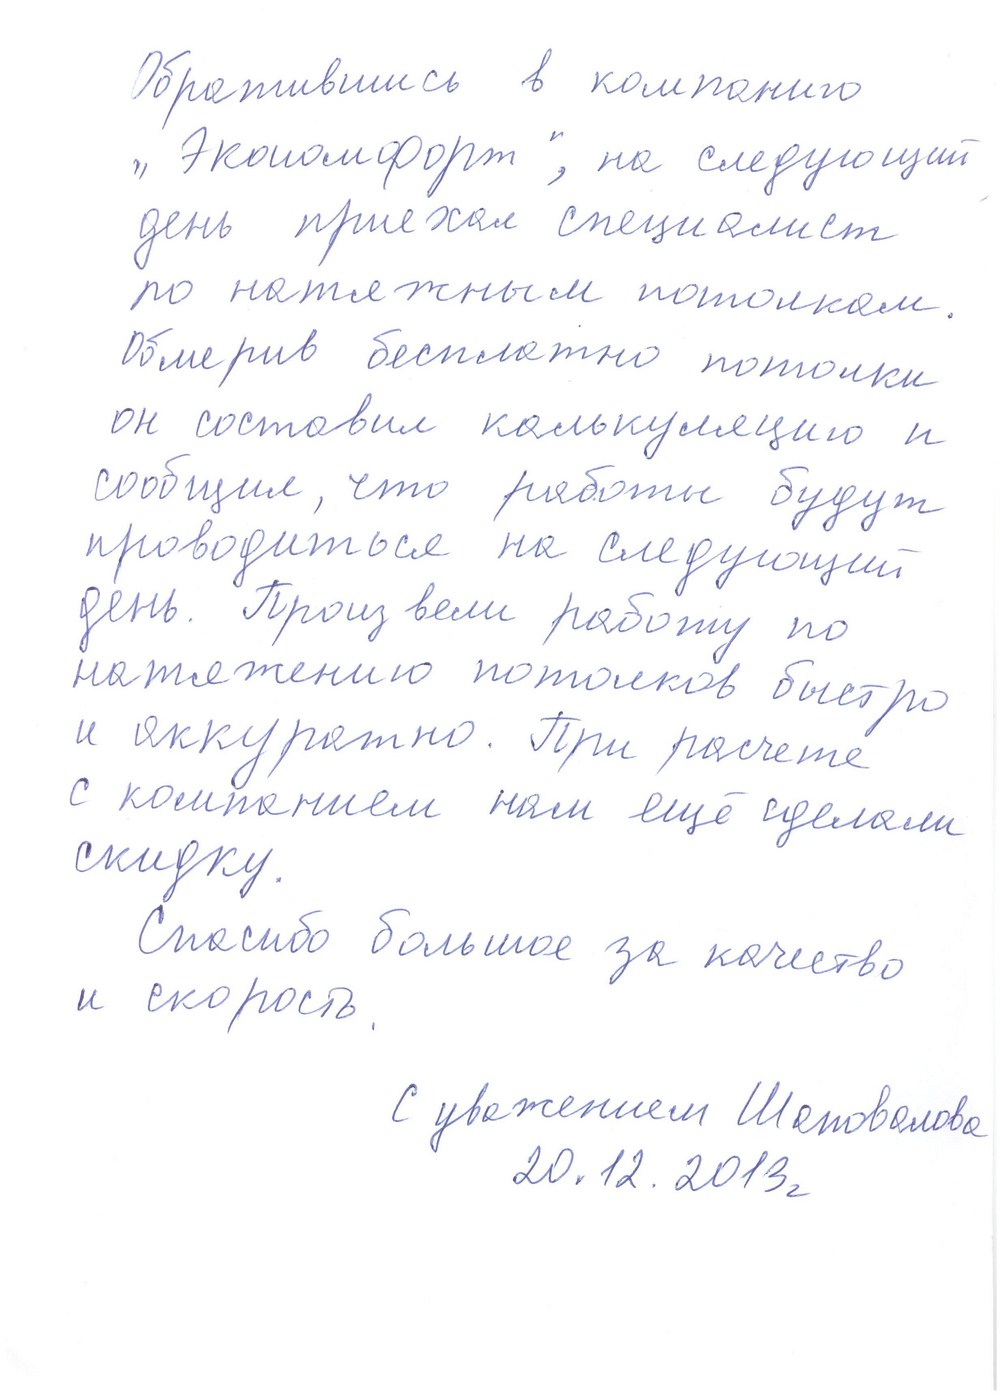 Обратившись в компанию
„Экономфорт", на следующий
день приехал специалист
по натяжным потолкам.
Обмерив бесплатно потолки
он составил калькуляцию и
сообщил, что работы будут
проводиться на следующий
день. Произвели работу по
натяжению потолков быстро
и аккуратно. При расчете
с компанием нам ещё сделали
скидку.
Спасибо большое за качество
и скорость.
С уважением Шаповалова
20.12.2013г